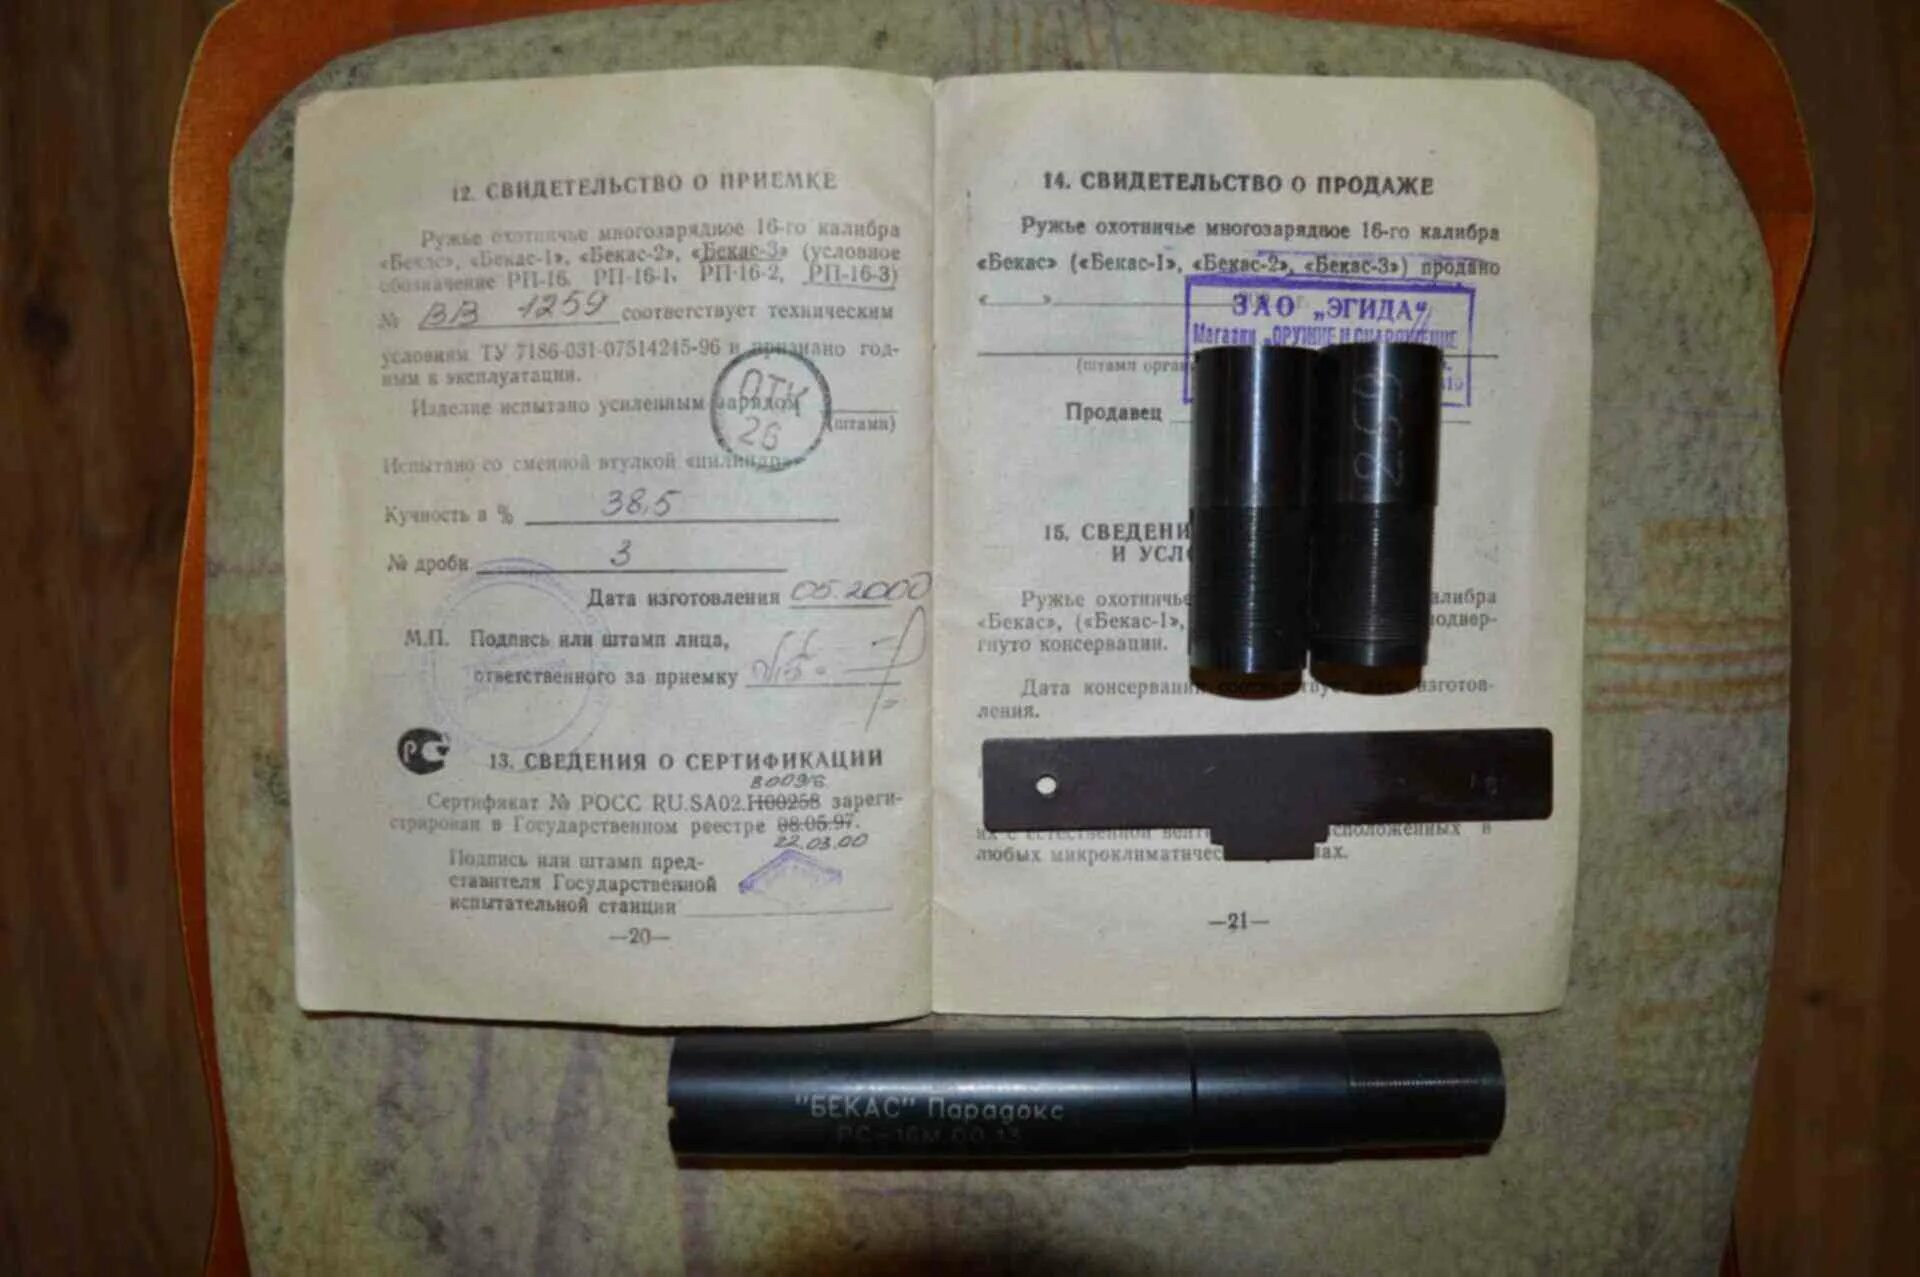 12. СВИДЕТЕЛЬСТВО О ПРИЕМКЕ
Ружье охотничье многозарядное 16-го калибра
«Бекас», «Бекас-1», «Бекас-2», «Бекас-3» (условное
обозначение РП-16, РП-16-1, РП-16-2, РП-16-3)
№ ВВ 1259 соответствует техническим
условиям ТУ 7186-031-07514245-96 и признано год-
ным к эксплуатации.
Изделие испытано усиленным зарядом
(штамп)
ОТК
26
Испытано со сменной втулкой «цилиндр»
Кучность в % 38,5
№ дроби 3
Дата изготовления 05.2000
М.П. Подпись или штамп лица,
ответственного за приемку
РС
13. СВЕДЕНИЯ О СЕРТИФИКАЦИИ
Сертификат № РОСС RU.SA02.Н00258 зареги-
стрирован в Государственном реестре 08.05.97.
22.03.00
Подпись или штамп пред-
ставителя Государственной
испытательной станции
—20—
14. СВИДЕТЕЛЬСТВО О ПРОДАЖЕ
Ружье охотничье многозарядное 16-го калибра
«Бекас» («Бекас-1», «Бекас-2», «Бекас-3») продано
« » г.
ЗАО „ЭГИДА“
Магазин „ОРУЖИЕ И СНАРЯЖЕНИЕ
(штамп
Продавец
259
15. СВЕДЕНИ
И УСЛ
Ружье охотничье калибра
«Бекас», («Бекас-1», подвер-
гнуто консервации.
Дата консервации соответствует дате изготов-
ления.
их с естественной расположенных в
любых микроклиматичес
—21—
"БЕКАС" Парадокс
РС-16м.00.13